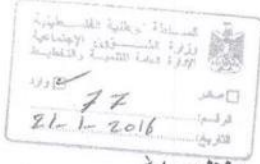 السلطة الوطنية الفلسطينية
وزارة الشؤون الاجتماعية
الإدارة العامة للتنمية والتخطيط
صادر وارد
الرقم: 77
التاريخ: 21-1-2016